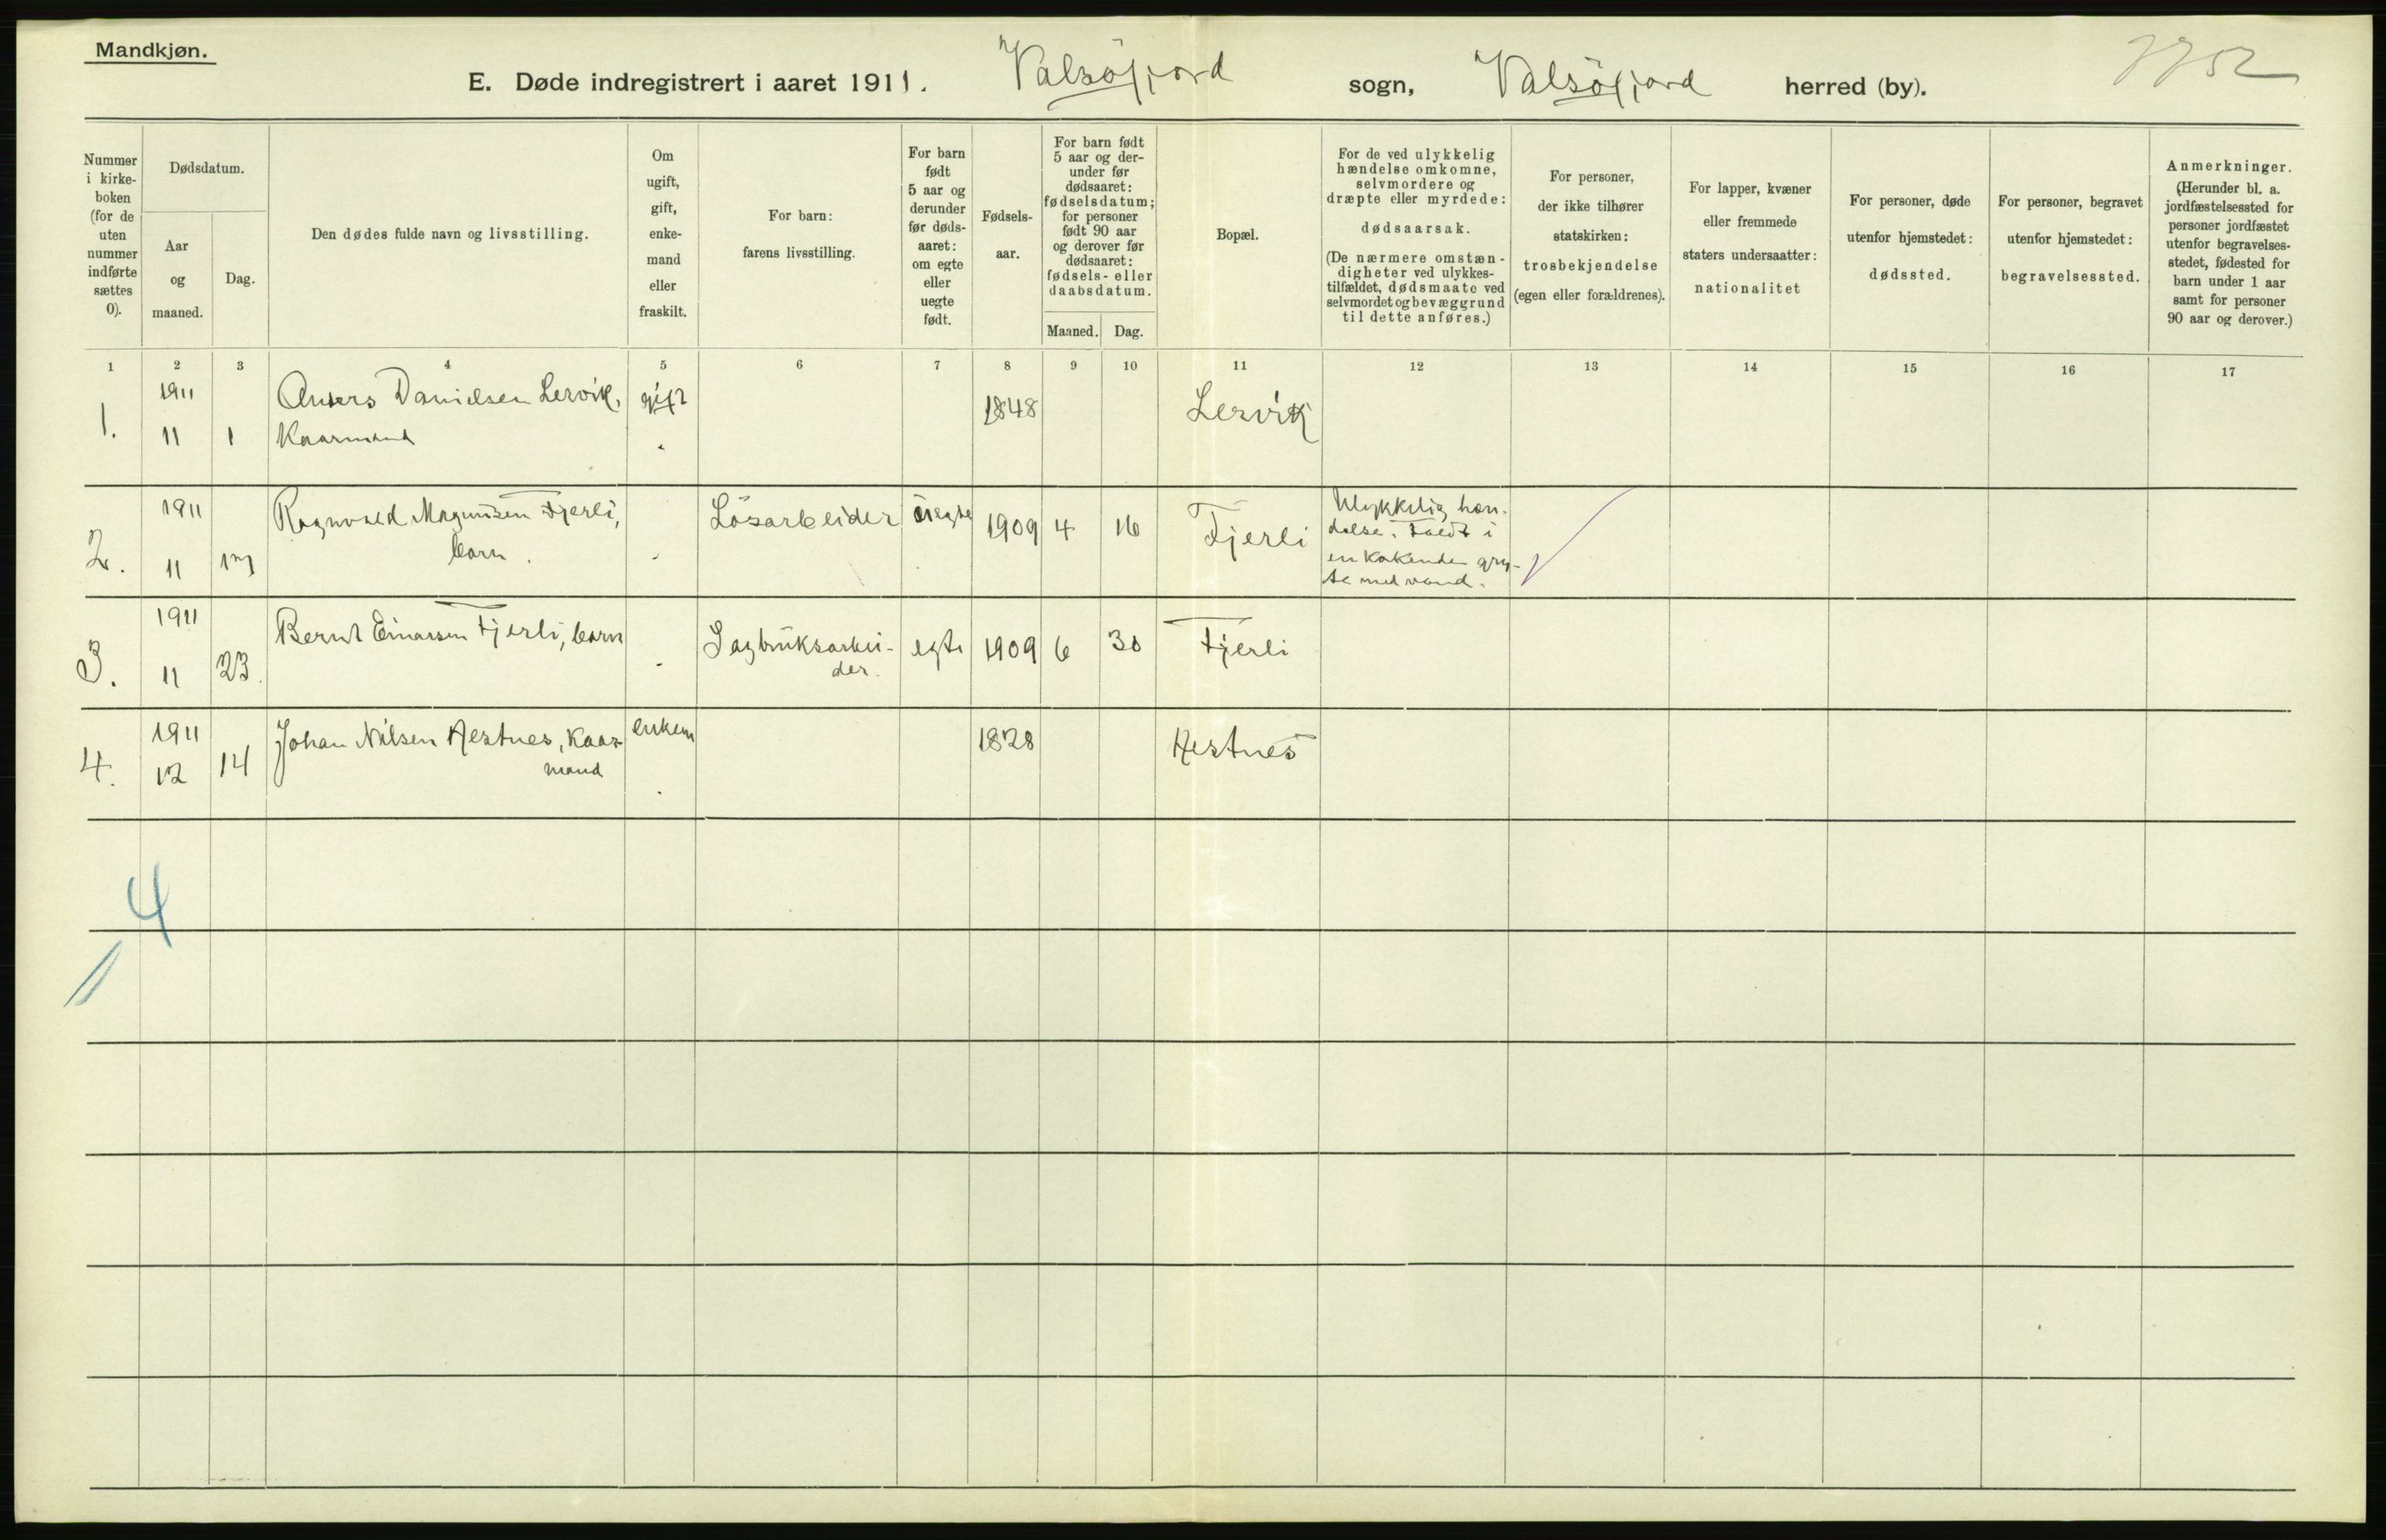 Mandkjøn.
E. Døde indregistrert i aaret 1911. Valsöfjord sogn, Valsöfjord herred (by).
7752
Nummer i kirke-boken (for de uten nummer indførte sættes 0).
Dødsdatum.
Aar og maaned.
Dag.
Den dødes fulde navn og livsstilling.
Om ugift, gift, enke-mand eller fraskilt.
For barn: farens livsstilling.
For barn født 5 aar og derunder før døds-aaret: om egte eller uegte født.
Fødsels-aar.
For barn født 5 aar og der-under før dødsaaret: fødselsdatum; for personer født 90 aar og derover før dødsaaret: fødsels- eller daabsdatum.
Maaned. Dag.
Bopæl.
For de ved ulykkelig hændelse omkomne, selvmordere og dræpte eller myrdede: dødsaarsak. (De nærmere omstæn-digheter ved ulykkes-tilfældet, dødsmaate ved selvmordet og bevæggrund til dette anføres.)
For personer, der ikke tilhører statskirken: trosbekjendelse (egen eller forældrenes).
For lapper, kvæner eller fremmede staters undersaatter: nationalitet
For personer, døde utenfor hjemstedet: dødssted.
For personer, begravet utenfor hjemstedet: begravelsessted.
Anmerkninger. (Herunder bl. a. jordfæstelsessted for personer jordfæstet utenfor begravelses-stedet, fødested for barn under 1 aar samt for personer 90 aar og derover.)
1 2 3 4 5 6 7 8 9 10 11 12 13 14 15 16 17
1. 1911 11 1 Anders Danielsen Lervik, Kaarmand gift 1848 Lervik
2. 1911 11 17 Ragnvald Magnusen Fjerli, barn. Lösarbeider uegte 1909 4 16 Fjerli Ulykkelig hæn-
delse. Faldt i
en kokende gry-
te med vand.
3. 1911 11 23. Bernt Einarsen Fjerli, barn Sagbruksarbei-
der. egte 1909 6 30 Fjerli
4. 1911 12 14 Johan Nilsen Hestnes, Kaar
mand enkem 1828 Hestnes
4